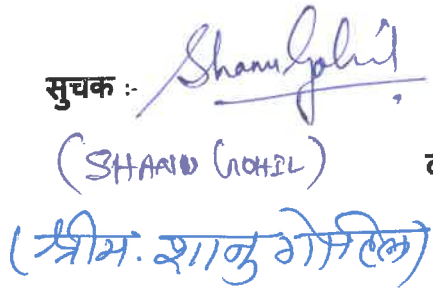 सुचक :- Shanu Gohil
(SHANU GOHIL)
(श्रीम. शानु गोहिल)